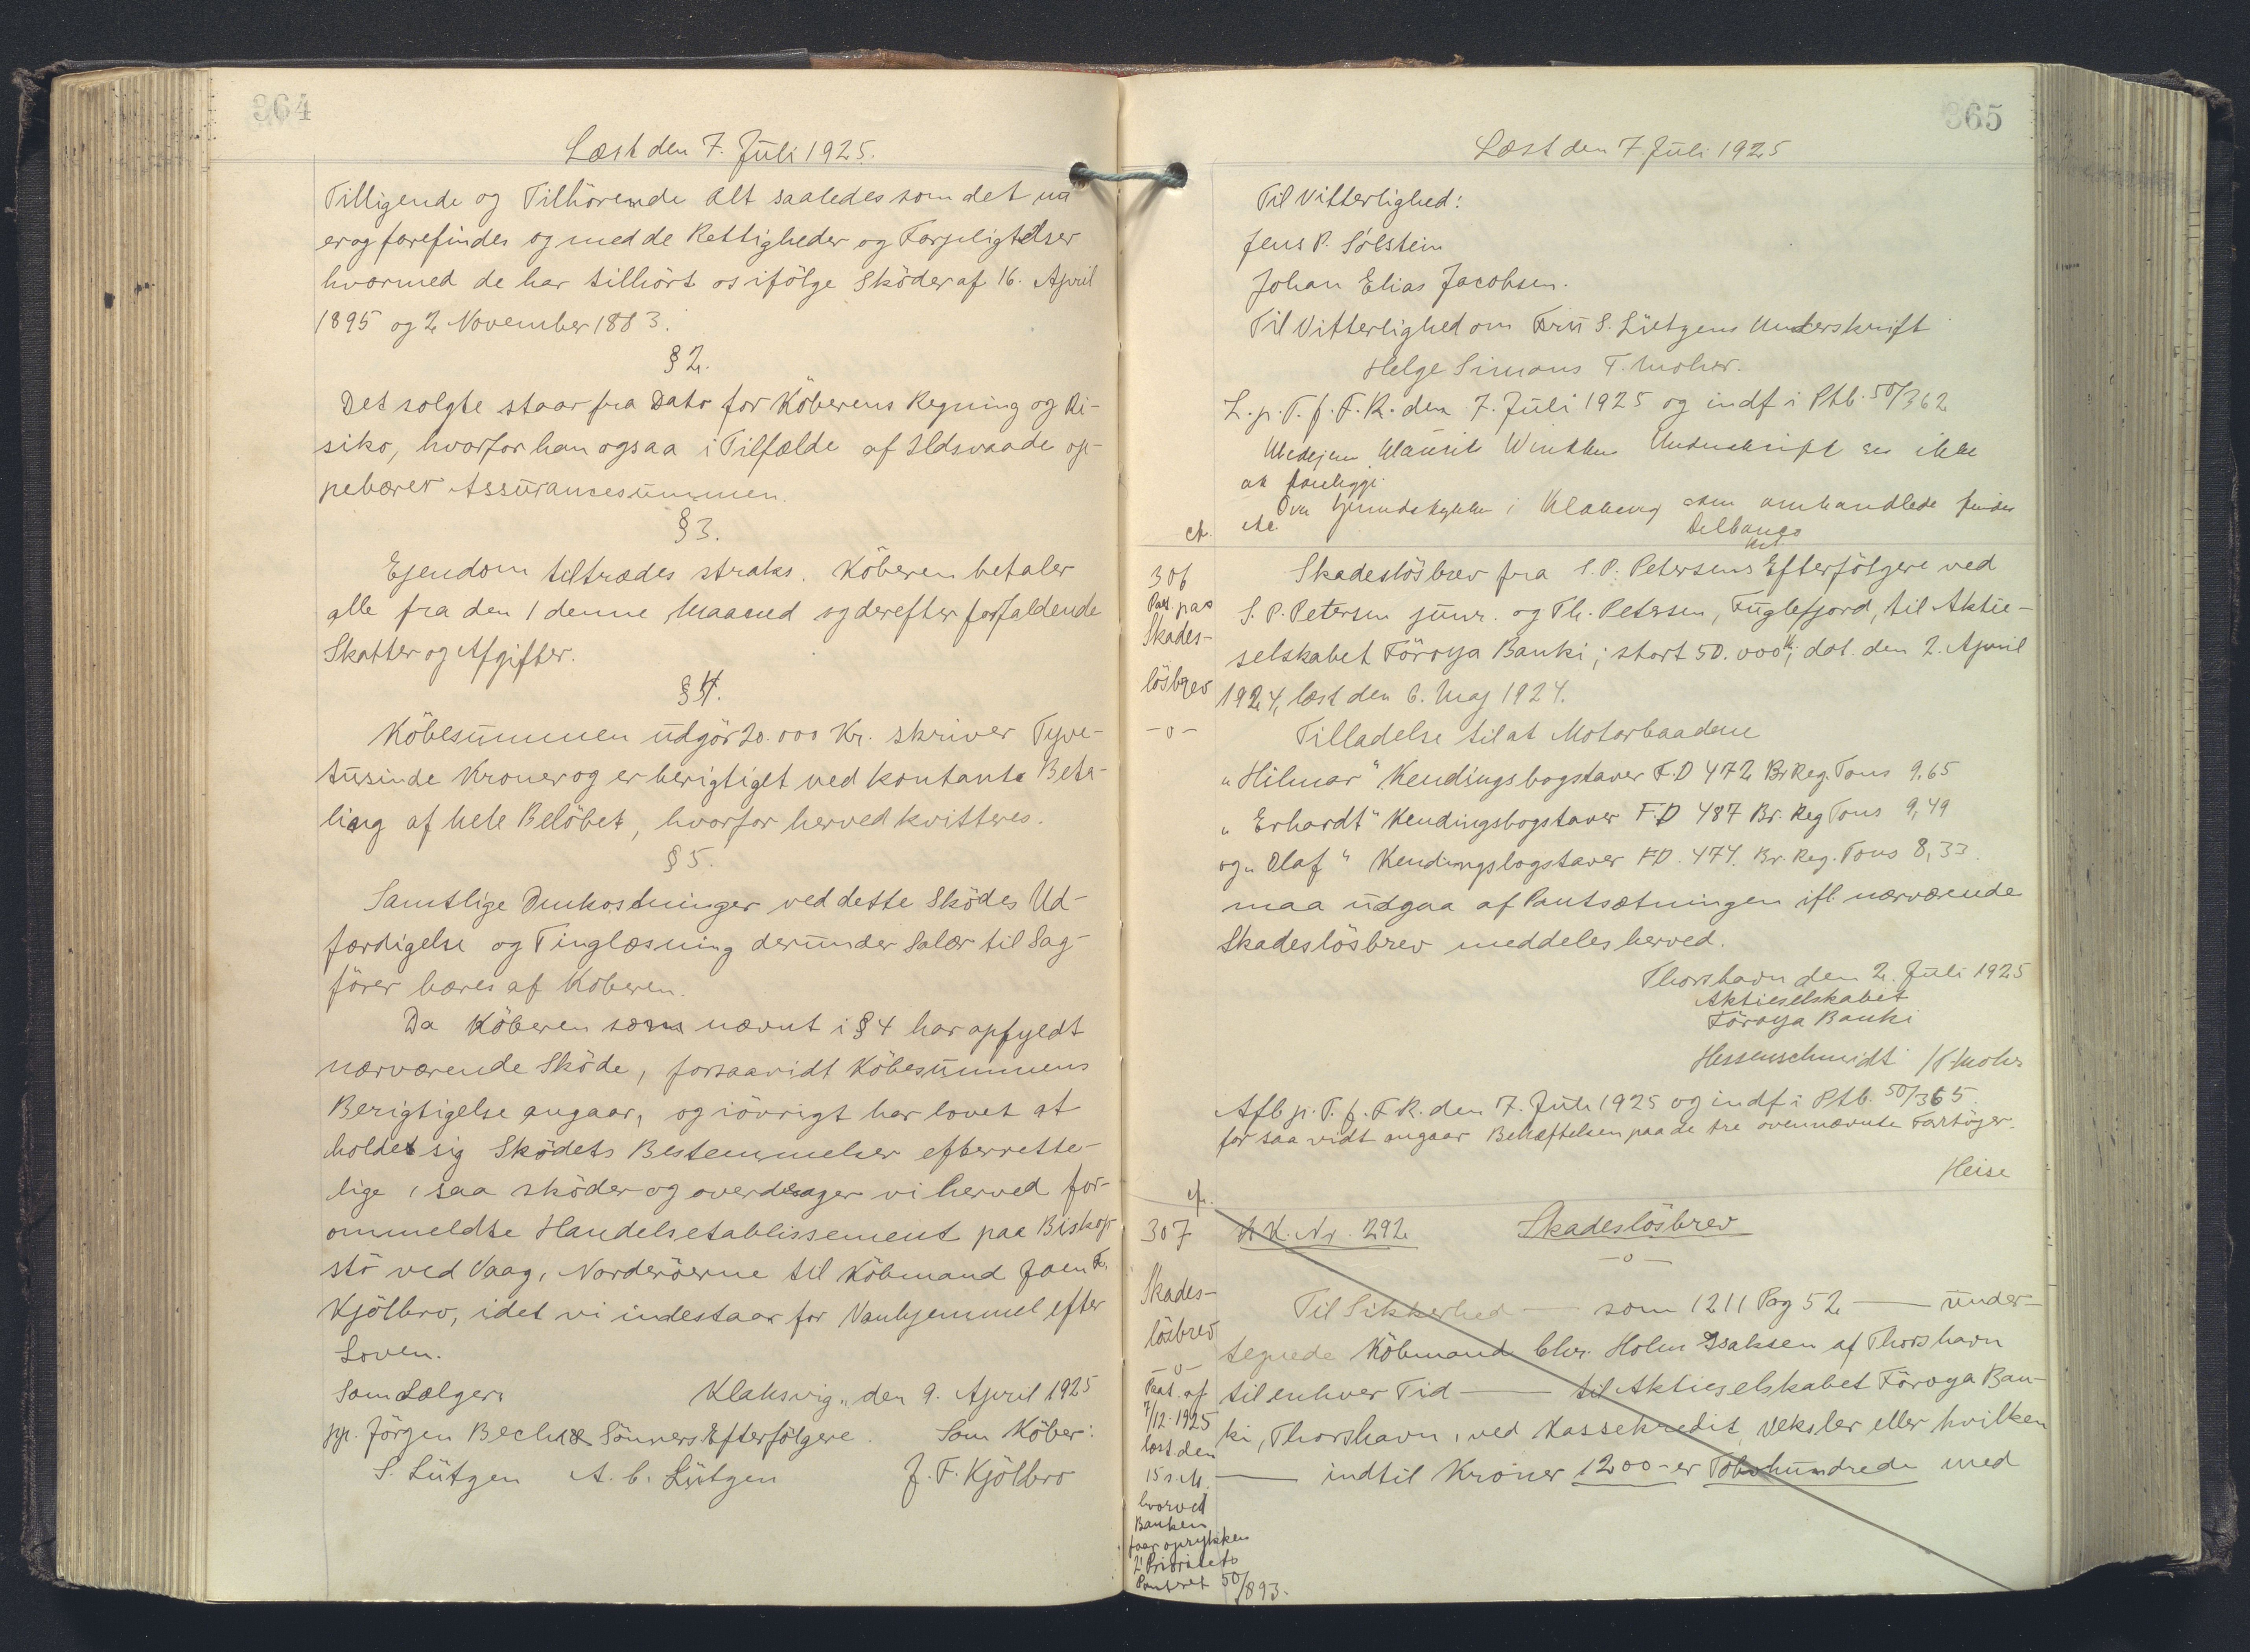 364
Læst den 7. Juli 1925.
Tilligende og Tilhörende alt saaledes som det nu
er og forefindes og med de Rettigheder og Forpligtelser
hvormed de har tilhört os ifölge Sköder af 16. April
1895 og 2 November 1883.
§ 2.
Det solgte staar fra Dato for Köberens Regning og Ri-
siko, hvorfor han ogsaa i Tilfælde af Ildsvaade op-
pebærer Assurancesummen.
§ 3.
Ejendom tiltrædes straks. Köberen betaler
alle fra den 1 denne Maaned og derefter forfaldende
Skatter og Afgifter.
§ 4.
Köbesummen udgör 20.000 Kr. skriver Tyve-
tusinde Kroner og er berigtiget ved kontant Beta-
ling af hele Belöbet, hvorfor herved kvitteres.
§ 5.
Samtlige Omkostninger ved dette Sködes Ud-
færdigelse og Tinglæsning derunder Salær til Sag-
förer bæres af Köberen.
Da Köberen som nævnt i § 4 har opfyldt
nærværende Sköde, forsaavidt Köbesummens
Berigtigelse angaar, og iövrigt har lovet at
holde sig Sködets Bestemmelser efterrette-
lige, saa sköder og overdrager vi herved for-
ommeldte Handelsetablissement paa Biskop-
stö ved Vaag, Norderöerne til Köbmand Joen F.
Kjölbro, idet vi indestaar for Vanhjemmel efter
Loven.
Som Sælger: Klaksvig, den 9. April 1925
pp. Jörgen Bechs Sönners Efterfölgere. Som Köber:
S. Lützen A. C. Lützen J. F. Kjölbro
365
Læst den 7. Juli 1925
Til Vitterlighed:
Jens P. Sólstein
Johan Elias Jacobsen.
Til Vitterlighed om Fru S. Lützens Underskrift
Helge Simons T. Mohr.
L. p. T. f. F. R. den 7. Juli 1925 og indf i Ptb. 50/362
Medejer Underskrift ses ikke
at foreligge.
i Klaksvig som omhandlede findes
cfr. ikke
Delbanco
kst.
306
Paat. paa
Skades-
lösbrev
-o-
Skadeslösbrev fra S. P. Petersens Efterfölgere ved
S. P. Petersen junr. og Th. Petersen, Fuglefjord, til Aktie-
selskabet Föroya Banki; stort 50.000 K; dat. den 2. April
1924, læst den 6. Maj 1924.
Tilladelse til at Motorbaadene
"Hilmar" Kendingsbogstaver F.D 472 Br Reg. Tons 9,65
"Erhardt" Kendingsbogstaver F.D 487 Br. Reg Tons 9,49
og "Olaf" Kendingsbogstaver FD. 474. Br. Reg. Tons 8,33.
maa udgaa af Pantsætningen ifl. nærværende
Skadeslösbrev meddeles herved.
Thorshavn den 2. Juli 1925
Aktieselskabet
Föroya Banki
Hessenschmidt /T Mohr
Afl. p. T. f. F. R. den 7. Juli 1925 og indf i Ptb. 50/365.
for saa vidt angaar Behæftelsen paa de tre ovennævnte Fartöjer.
Heise
cfr.
307
Skades-
lösbrev
-o-
Paat. af
7/12-1925
læst den
15 s. M.
hvorved
Banken
faar oprykken
2' Prioritets
Panteret 50/893.
K. Nr. 292 Skadeslösbrev
-o-
Til Sikkerhed — som 1211 Pag 52 — under-
tegnede Köbmand Chr. Holm Isaksen af Thorshavn
til enhver Tid — til Aktieselskabet Föroya Ban-
ki, Thorshavn, ved Kassekredit, Veksler eller hvilken
— indtil Kroner 1200 - er Tolvhundrede med